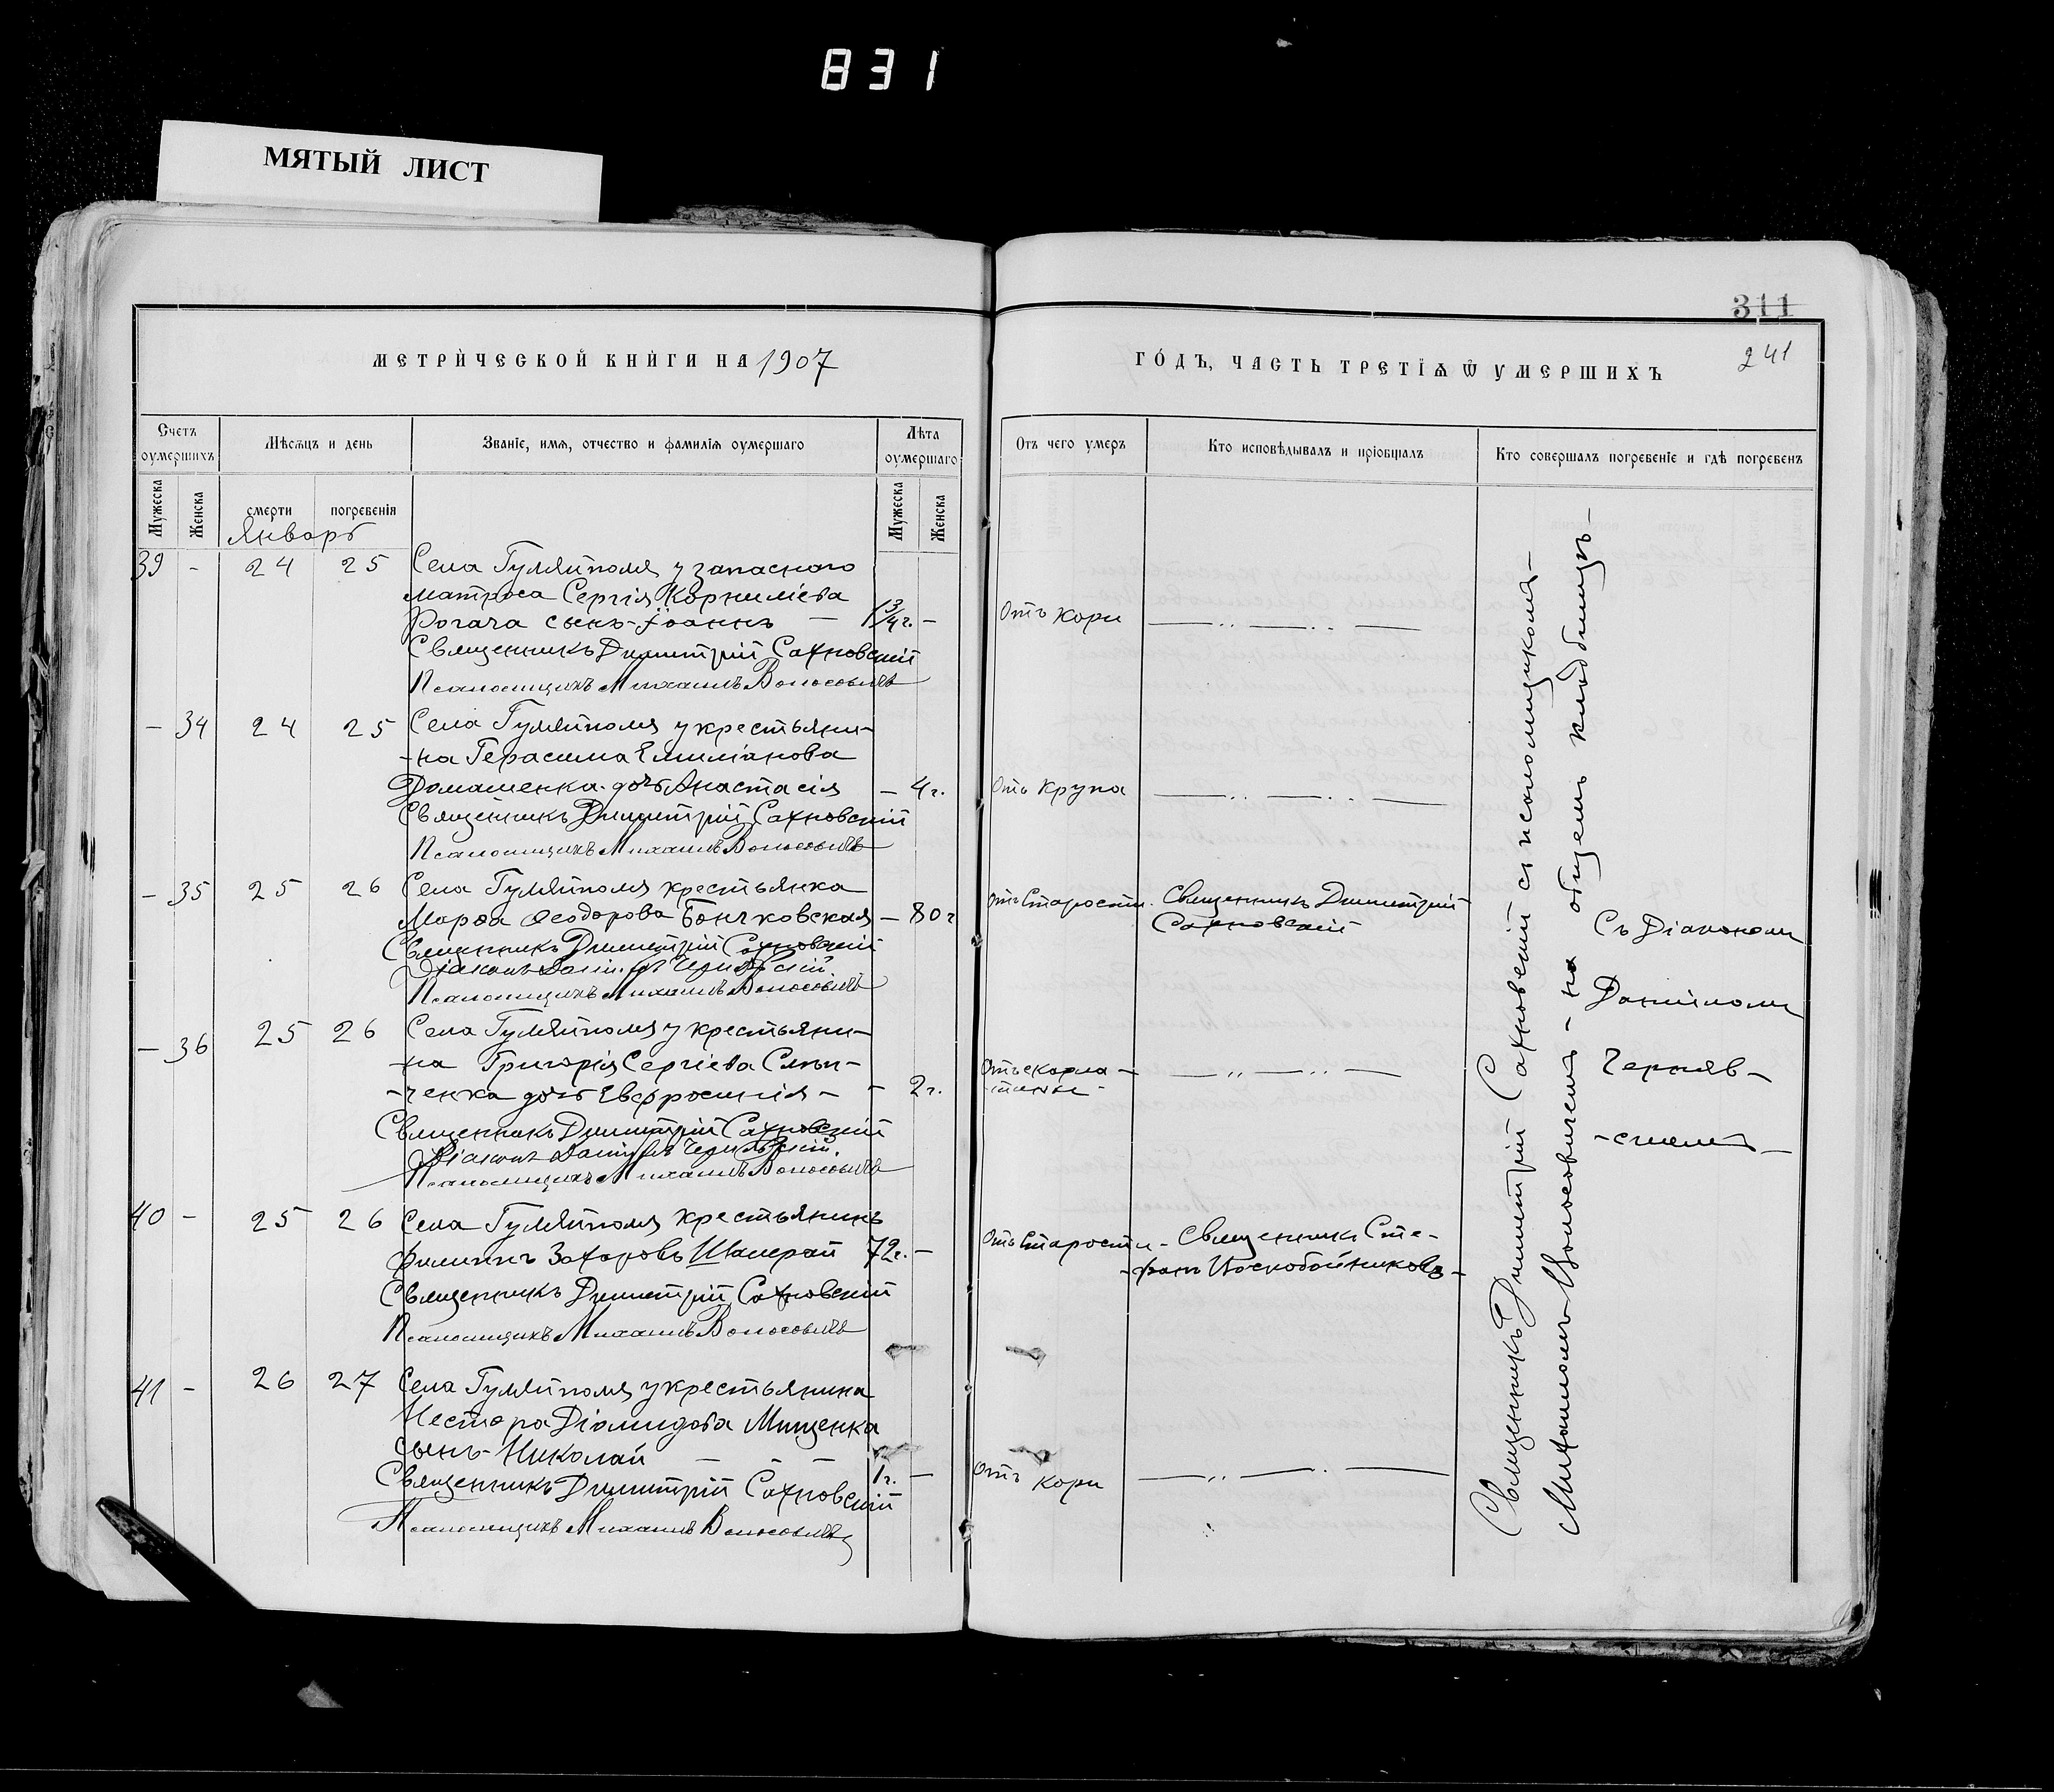 831
МЯТЫЙ ЛИСТ
311
МЕТРИЧЕСКОЙ КНИГИ НА 1907
ГОДЪ, ЧАСТЬ ТРЕТІЯ Ѿ УМЕРШИХЪ
241
Счетъ оумершихъ
Мѣсяцъ и день
Званіе, имя, отчество и фамилія оумершаго
Лѣта оумершаго
Отъ чего умеръ
Кто исповѣдывалъ и пріобщалъ
Кто совершалъ погребеніе и гдѣ погребенъ
Мужеска
Женска
смерти
погребенія
Мужеска
Женска
Январь
39 - 24 25 Села Гуляйполя у запаснаго
матроса Сергія Корниліева
Рогача сынъ Іоаннъ — 1 3/4 г. — Отъ кори
Священникъ Димитрій Сахновскій
Псаломщикъ Михаилъ Волосовичъ
— 34 24 25 Села Гуляйполя у крестьяни-
-на Герасима Емиліанова
Домашенка дочь Анастасія — 4 г. Отъ крупа
Священникъ Димитрій Сахновскій
Псаломщикъ Михаилъ Волосовичъ
— 35 25 26 Села Гуляйполя крестьянка
Марѳа Ѳеодорова Бончковская — 80 г. Отъ старости. Священникъ Димитрій
Сахновскій
Священникъ Димитрій Сахновскій
Діаконъ Даніилъ Чернявскій
Псаломщикъ Михаилъ Волосовичъ
— 36 25 26 Села Гуляйполя у крестьяни-
-на Григорія Сергіева Слѣп-
-ченка дочь Евфросинія — - 2 г. Отъ скарла-
-тины-
Священникъ Димитрій Сахновскій
Діаконъ Даніилъ Чернявскій.
Псаломщикъ Михаилъ Волосовичъ
40 - 25 26 Села Гуляйполя крестьянинъ
Филиппъ Захаровъ Шамрай 72 г. — Отъ старости - Священникъ Сте-
-фанъ Воскобойниковъ -
Священникъ Димитрій Сахновскій
Псаломщикъ Михаилъ Волосовичъ
41 - 26 27 Села Гуляйполя у крестьянина
Нестера Діомидова Мищенка
сынъ - Николай — 1 г. — Отъ кори
Священникъ Димитрій Сахновскій
Псаломщикъ Михаилъ Волосовичъ
Священникъ Димитрій Сахновскій съ псаломщикомъ-
Михаиломъ Волосовичемъ - на общемъ кладбищѣ -
Съ Діакономъ
Даніиломъ
Черняв-
-скимъ -